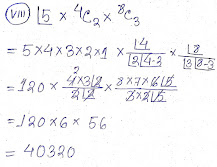 (viii) ⌊5 × ⁴C₂ × ⁸C₃
= 5×4×3×2×1 × ⌊4 / ⌊2 ⌊4-2 × ⌊8 / ⌊3 ⌊8-3
= 120 × 4×3⌊2 / 2⌊2 × 8×7×6⌊5 / 3×2⌊5
= 120 × 6 × 56
= 40320